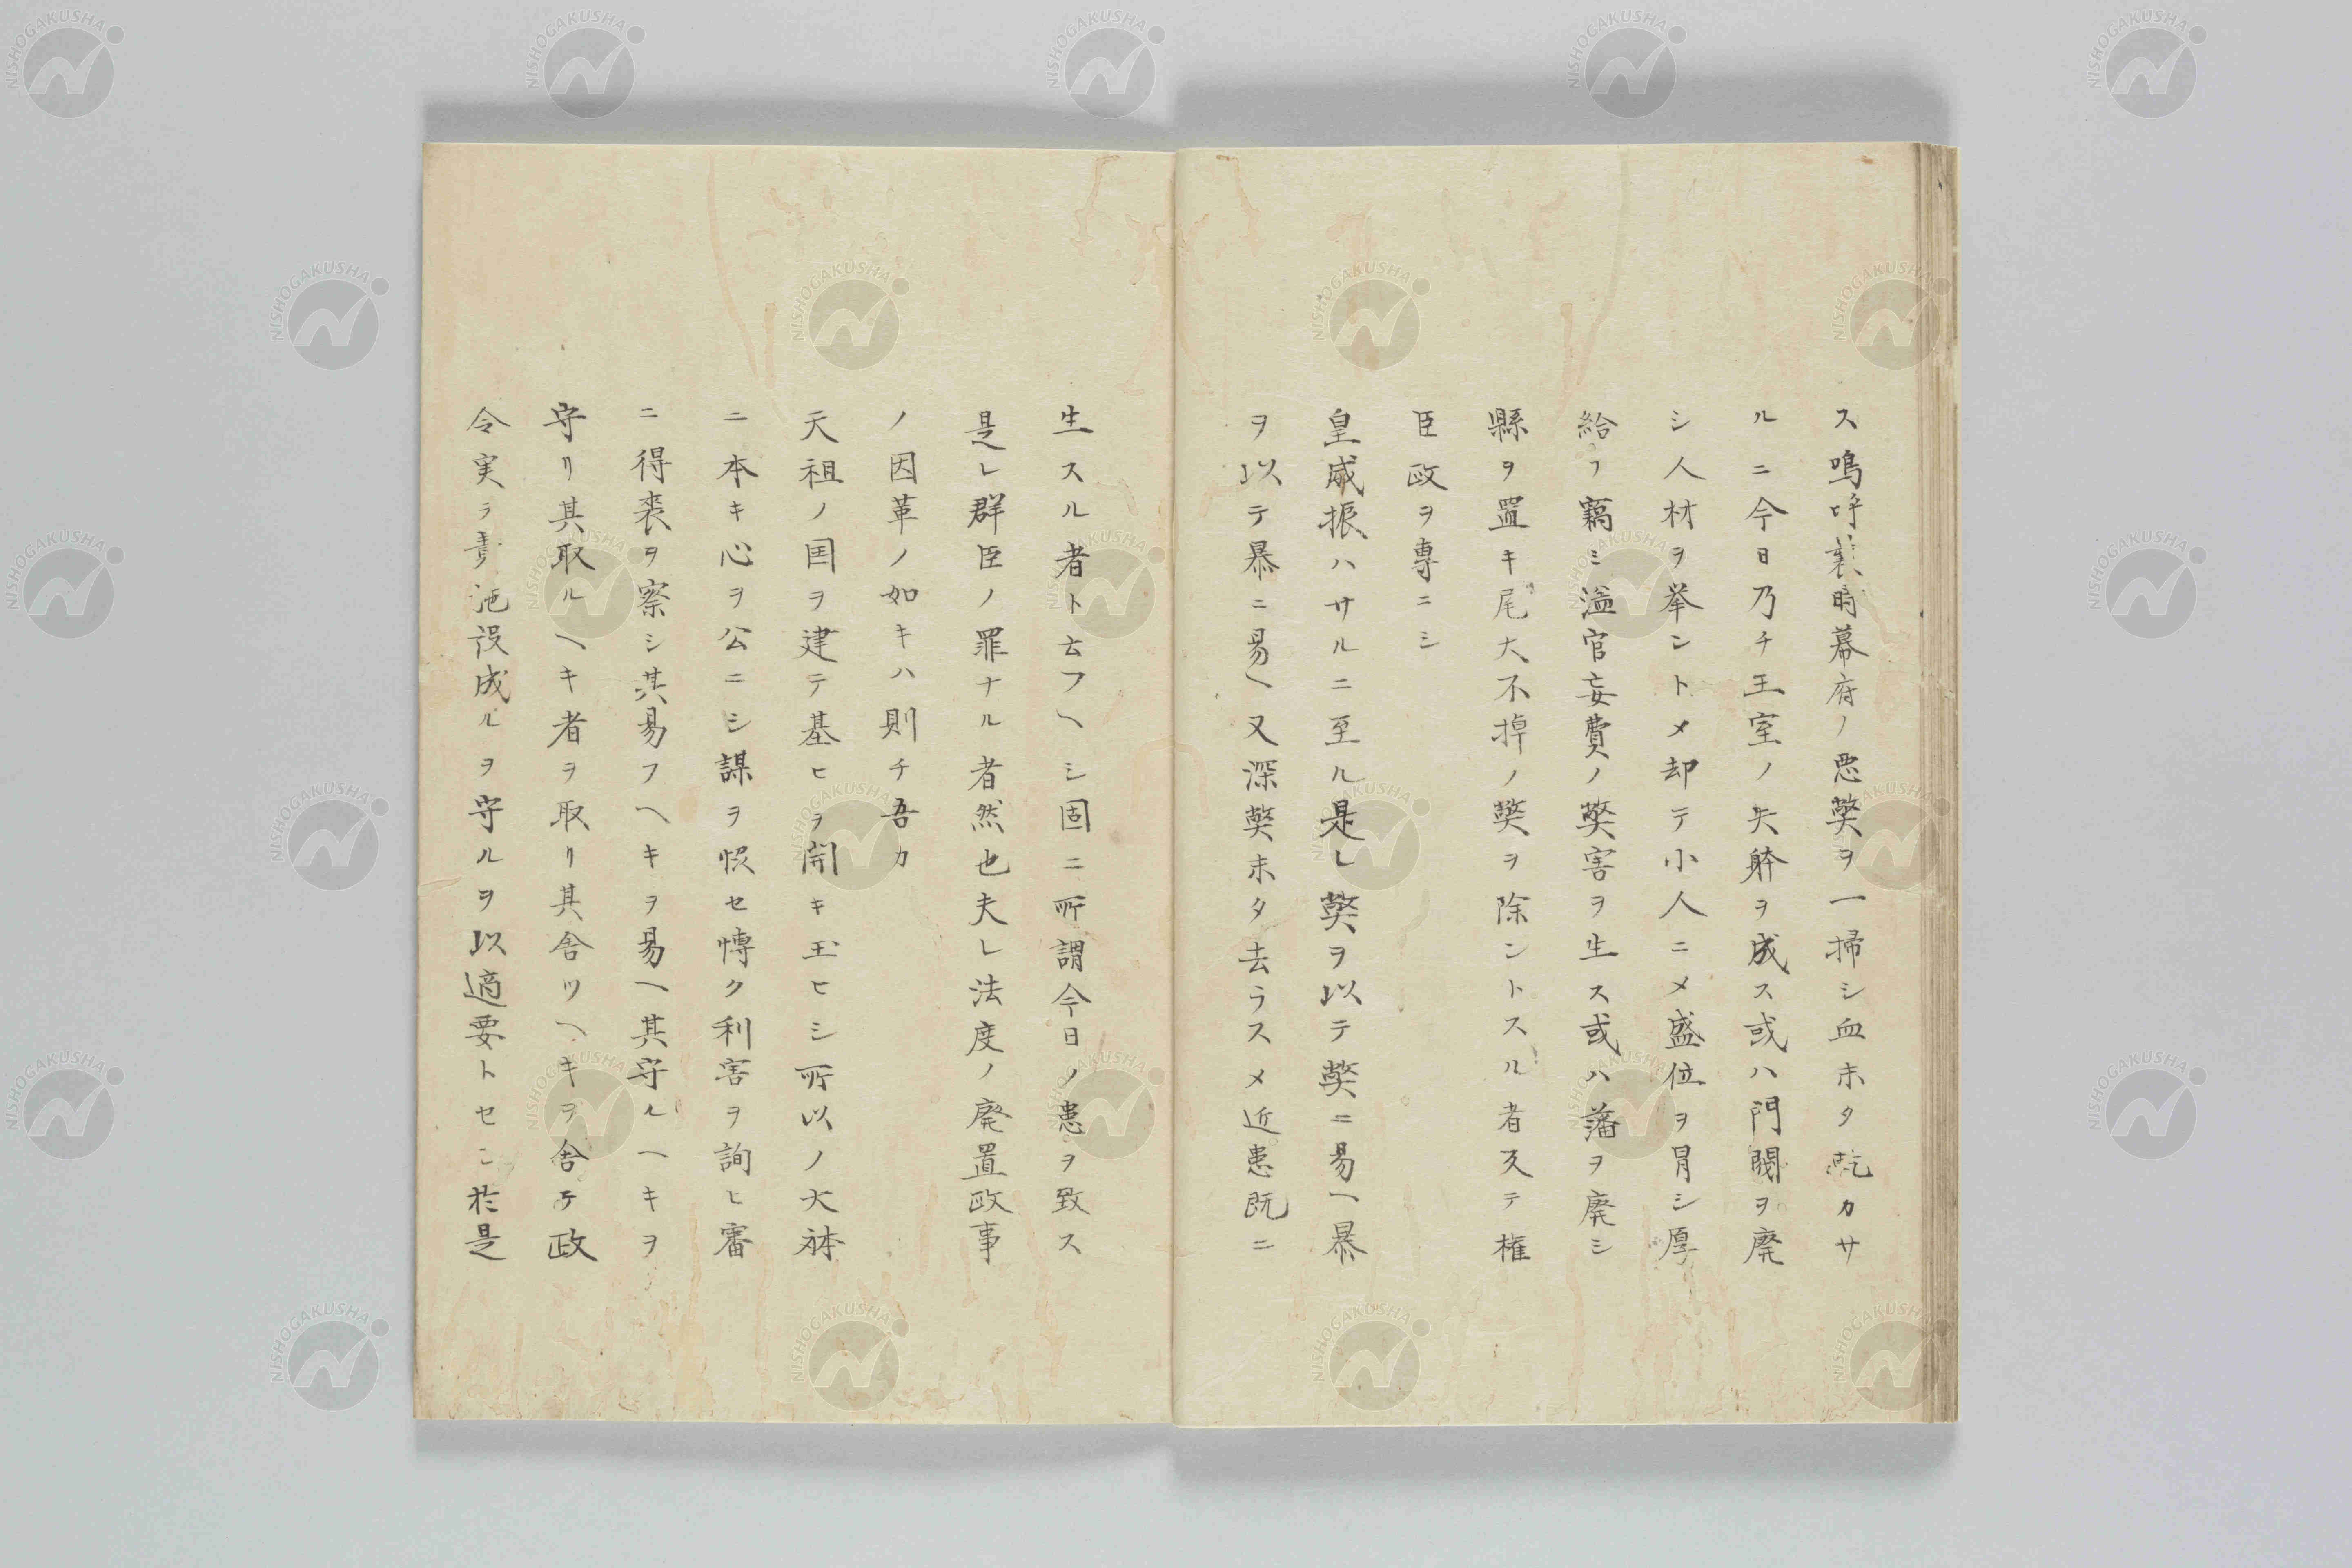 ス嗚呼曩時幕府ノ悪獘ヲ一掃シ血未タ乾カサ
ルニ今日乃チ王室ノ失躰ヲ成ス或ハ門閥ヲ廃
シ人材ヲ挙ントメ却テ小人ニメ盛位ヲ冒シ厚
給ヲ竊ミ溢官妄費ノ獘害ヲ生ス或ハ藩ヲ廃シ
縣ヲ置キ尾大不掉ノ獘ヲ除ントスル者反テ権
臣政ヲ専ニシ
皇威振ハサルニ至ル是レ獘ヲ以テ獘ニ易ヘ暴
ヲ以テ暴ニ易ヘ又深獘未タ去ラスメ近患既ニ
生スル者ト云フヘシ固ニ所謂今日ノ患ヲ致ス
是レ群臣ノ罪ナル者然也夫レ法度ノ廃置政事
ノ因革ノ如キハ則チ吾カ
天祖ノ国ヲ建テ基ヒヲ開キ玉ヒシ所以ノ大体
ニ本キ心ヲ公ニシ謀ヲ悞セ愽ク利害ヲ詢ヒ審
ニ得喪ヲ察シ其易フヘキヲ易ヘ其守ルヘキヲ
守リ其取ルヘキ者ヲ取リ其舎ツヘキヲ舎テ政
令実ヲ責施設成ルヲ守ルヲ以適要トセン於是
NISHOGAKUSHA